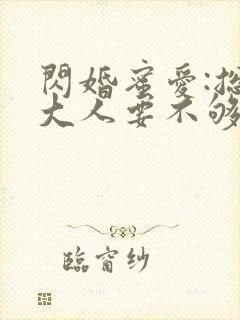 閃婚蜜愛:總
大人要不够
臨窗纱